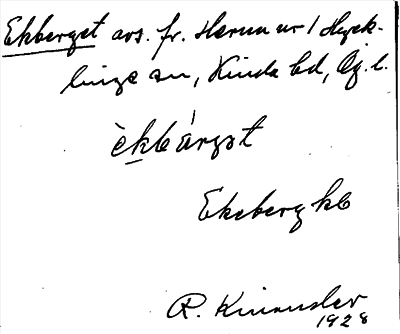 Ekberget avs. fr. Herrn nr 1 Hyck-
linge sn, Kinda hd, Ög. l.
èkbárgət
Ekeberg kb
R. Kinander
1928